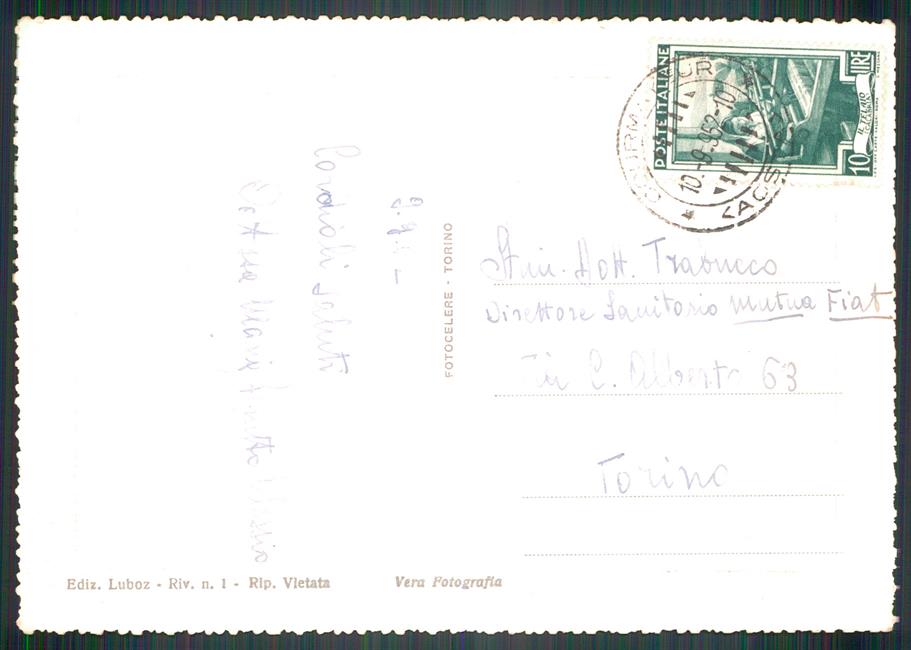 9.9.
Cordiali saluti
POSTE ITALIANE
LIRE
10
IL TELAIO
COURMAYEUR
10-9-952-10
(AOSTA)
FOTOCELERE - TORINO
Dott. Trabucco
Direttore Sanitario Mutua Fiat
Via C. Alberto 63
Torino
Ediz. Luboz - Riv. n. 1 - Rip. Vietata
Vera Fotografia